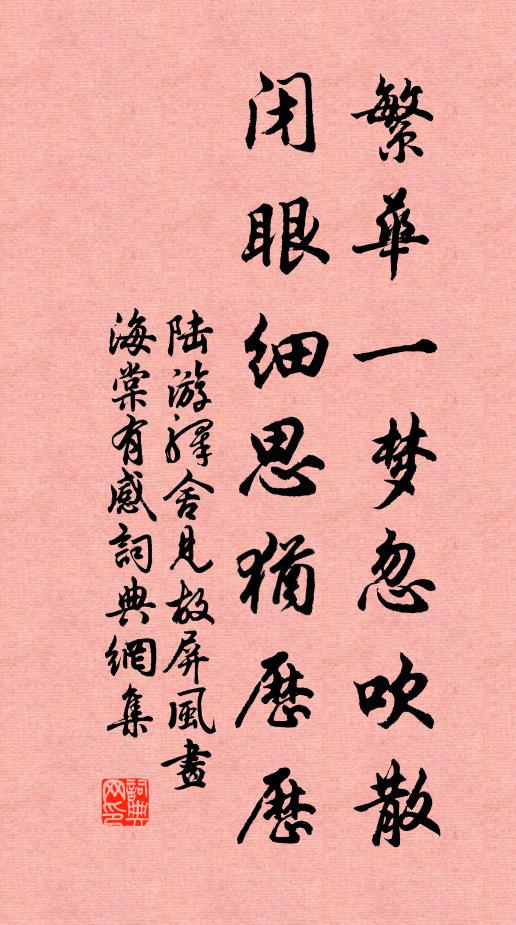 繁華一梦忽吹散
闭眼细思犹歷歷
陆游驿舍见故屏風畫
海棠有感詞典網集
詞典网印